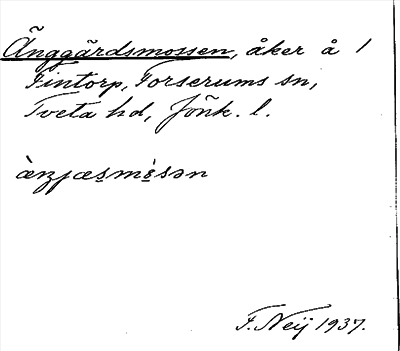 Änggärdsmossen, åker å 1
Fintorp, Forserums sn,
Tveta hd, Jönk. l.
F. Neij 1937.